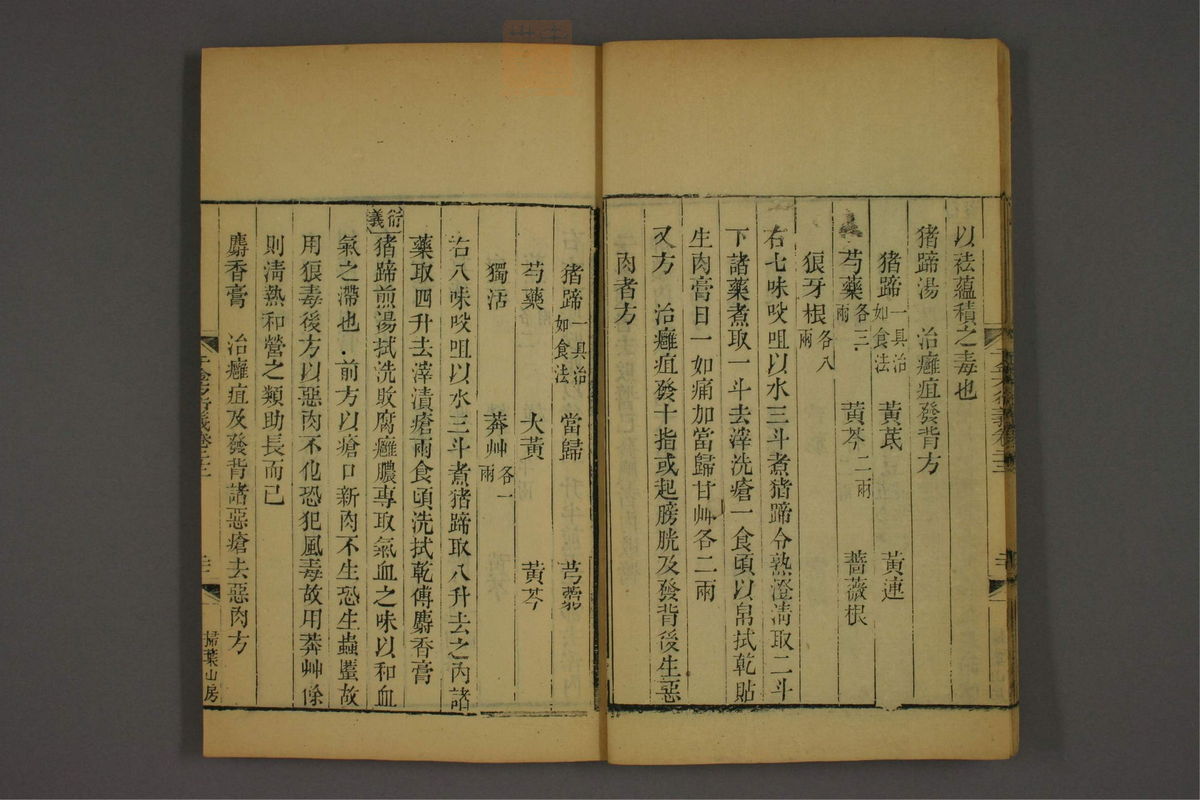 以祛蘊積之毒也
猪蹄湯　治癰疽發背方
猪蹄一具治如食法　黃芪　黃連
芍藥各三兩　黃芩二兩　薔薇根
狼牙根各八兩
右七味㕮咀以水三斗煮猪蹄令熟澄淸取二斗
下諸藥煮取一斗去滓洗瘡一食頃以帛拭乾貼
生肉膏日一如痛加當歸甘艸各二兩
又方　治癰疽發十指或起膀胱及發背後生惡
肉者方
猪蹄一具治如食法　當歸　芎藭
芍藥　大黃　黃芩
獨活　莽艸各一兩
右八味㕮咀以水三斗煮猪蹄取八升去之內諸
藥取四升去滓漬瘡兩食頃洗拭乾傅麝香膏
衍義
猪蹄煎湯拭洗敗腐癰膿專取氣血之味以和血
氣之滯也．前方以瘡口新肉不生恐生蟲䘌故
用狼毒後方以惡肉不化恐犯風毒故用莽艸餘
則清熱和營之類助長而已
麝香膏　治癰疽及發背諸惡瘡去惡肉方
千金方衍義卷二十二
掃葉山房